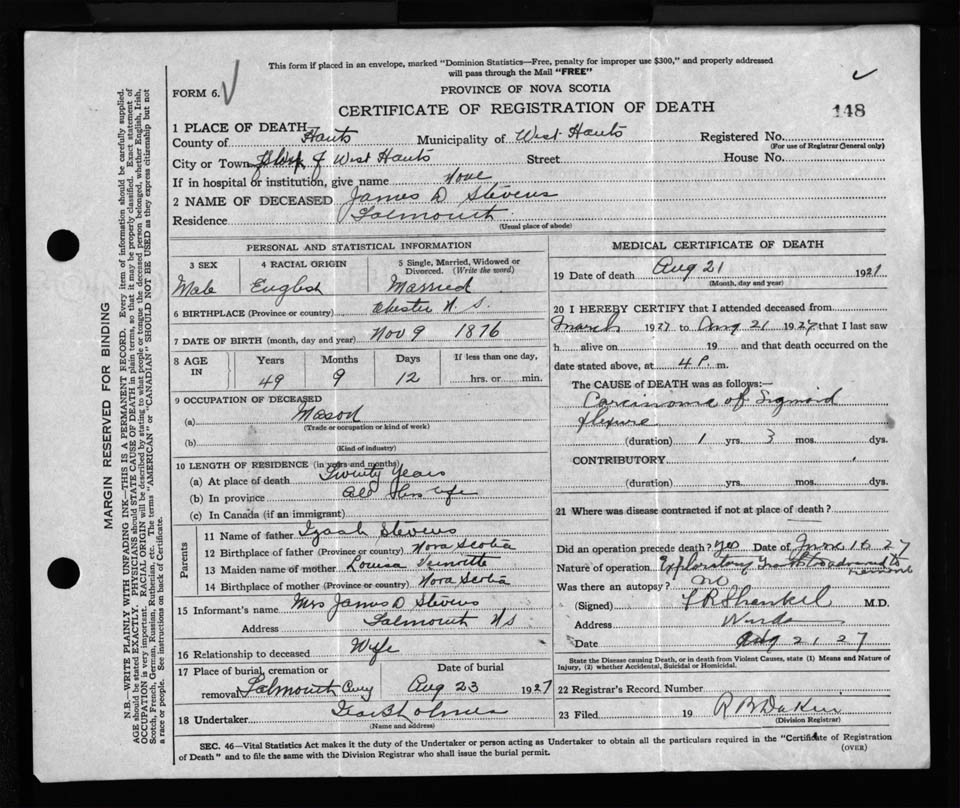 This form if placed in an envelope, marked "Dominion Statistics—Free, penalty for improper use $300," and properly addressed
will pass through the Mail "FREE"
FORM 6.
PROVINCE OF NOVA SCOTIA
CERTIFICATE OF REGISTRATION OF DEATH
148
1 PLACE OF DEATH—
County of Hants Municipality of West Hants Registered No.
(For use of Registrar General only)
City or Town of West Hants Street House No.
If in hospital or institution, give name None
2 NAME OF DECEASED James D Stevens
Residence Falmouth
(Usual place of abode)
PERSONAL AND STATISTICAL INFORMATION
3 SEX 4 RACIAL ORIGIN 5 Single, Married, Widowed or
Divorced. (Write the word)
Male English Married
6 BIRTHPLACE (Province or country) Chester N. S.
7 DATE OF BIRTH (month, day and year) Nov 9 1876
8 AGE IN Years Months Days If less than one day,
49 9 12 hrs. or min.
9 OCCUPATION OF DECEASED
(a) Mason
(Trade or occupation or kind of work)
(b)
(Kind of industry)
10 LENGTH OF RESIDENCE (in years and months)
(a) At place of death Twenty Years
(b) In province All His life
(c) In Canada (if an immigrant)
Parents
11 Name of father Stevens
12 Birthplace of father (Province or country) Nova Scotia
13 Maiden name of mother Louisa
14 Birthplace of mother (Province or country) Nova Scotia
15 Informant's name Mrs James D Stevens
Address Falmouth N S
16 Relationship to deceased Wife
17 Place of burial, cremation or Date of burial
removal Falmouth Aug 23 1927
18 Undertaker
(Name and address)
MEDICAL CERTIFICATE OF DEATH
19 Date of death Aug 21 1927
(Month, day and year)
20 I HEREBY CERTIFY that I attended deceased from
March 1927 to Aug 21 1927 that I last saw
h alive on 19 and that death occurred on the
date stated above, at 4 P. m.
The CAUSE of DEATH was as follows:—
Carcinoma of Sigmoid
flexure
(duration) 1 yrs. 3 mos. dys.
CONTRIBUTORY
(duration) yrs. mos. dys.
21 Where was disease contracted if not at place of death?
Did an operation precede death? Yes Date of June 16 27
Nature of operation Exploratory
Was there an autopsy? no
(Signed) M.D.
Address
Date Aug 21 27
State the Disease causing Death, or in death from Violent Causes, state (1) Means and Nature of
Injury, (2) whether Accidental, Suicidal or Homicidal.
22 Registrar's Record Number
23 Filed 19
(Division Registrar)
SEC. 46—Vital Statistics Act makes it the duty of the Undertaker or person acting as Undertaker to obtain all the particulars required in the "Certificate of Registration
of Death" and to file the same with the Division Registrar who shall issue the burial permit.
(OVER)
MARGIN RESERVED FOR BINDING
N.B.—WRITE PLAINLY WITH UNFADING INK—THIS IS A PERMANENT RECORD. Every item of information should be carefully supplied.
AGE should be stated EXACTLY. PHYSICIANS should STATE CAUSE OF DEATH in plain terms, so that it may be properly classified. Exact statement of
OCCUPATION is very important. RACIAL ORIGIN will be described by stating to what people or tongue the deceased person belonged, whether English, Irish,
Scotch, French, German, Russian, Ruthenian, etc. The terms "AMERICAN" or "CANADIAN" SHOULD NOT BE USED as they express citizenship but not
a race or people. See instructions on back of Certificate.